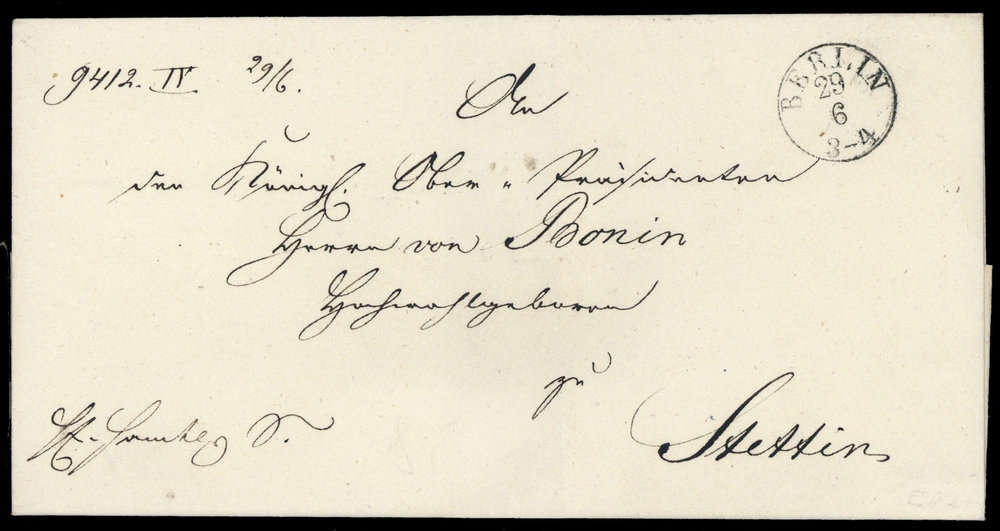 9412. IV 29/6.
BERLIN
29
6
3-4
An
den Königl. Ober-Präsidenten
Herrn von Bonin
Hochwohlgeboren
zu
Stettin
S.